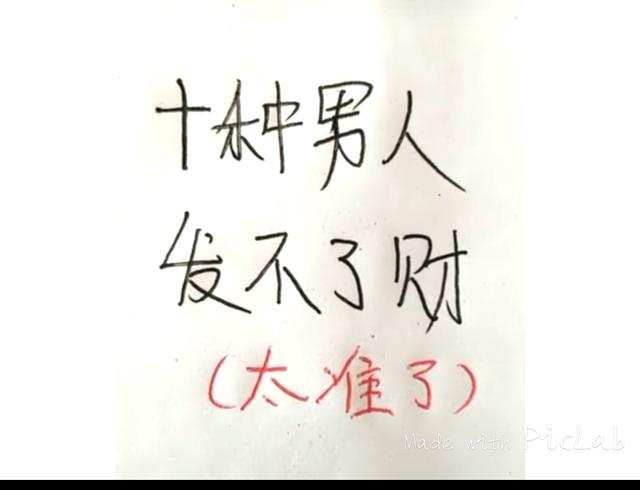 十种男人
发不了财
(太准了)
Made with PicLab